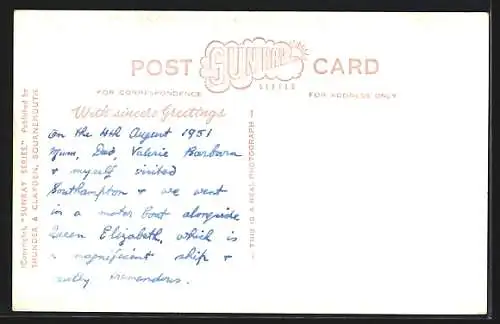 POST SUNRAY CARD
SERIES
FOR CORRESPONDENCE FOR ADDRESS ONLY
With sincere Greetings
On the 4th August 1951
Mum, Dad, Valerie Barbara
& myself visited
Southampton & we went
in a motor boat alongside
Queen Elizabeth, which is
a magnificent ship &
really tremendous.
THIS IS A REAL PHOTOGRAPH
(Copyright, "SUNRAY SERIES," Published by
THUNDER & CLAYDEN, BOURNEMOUTH.